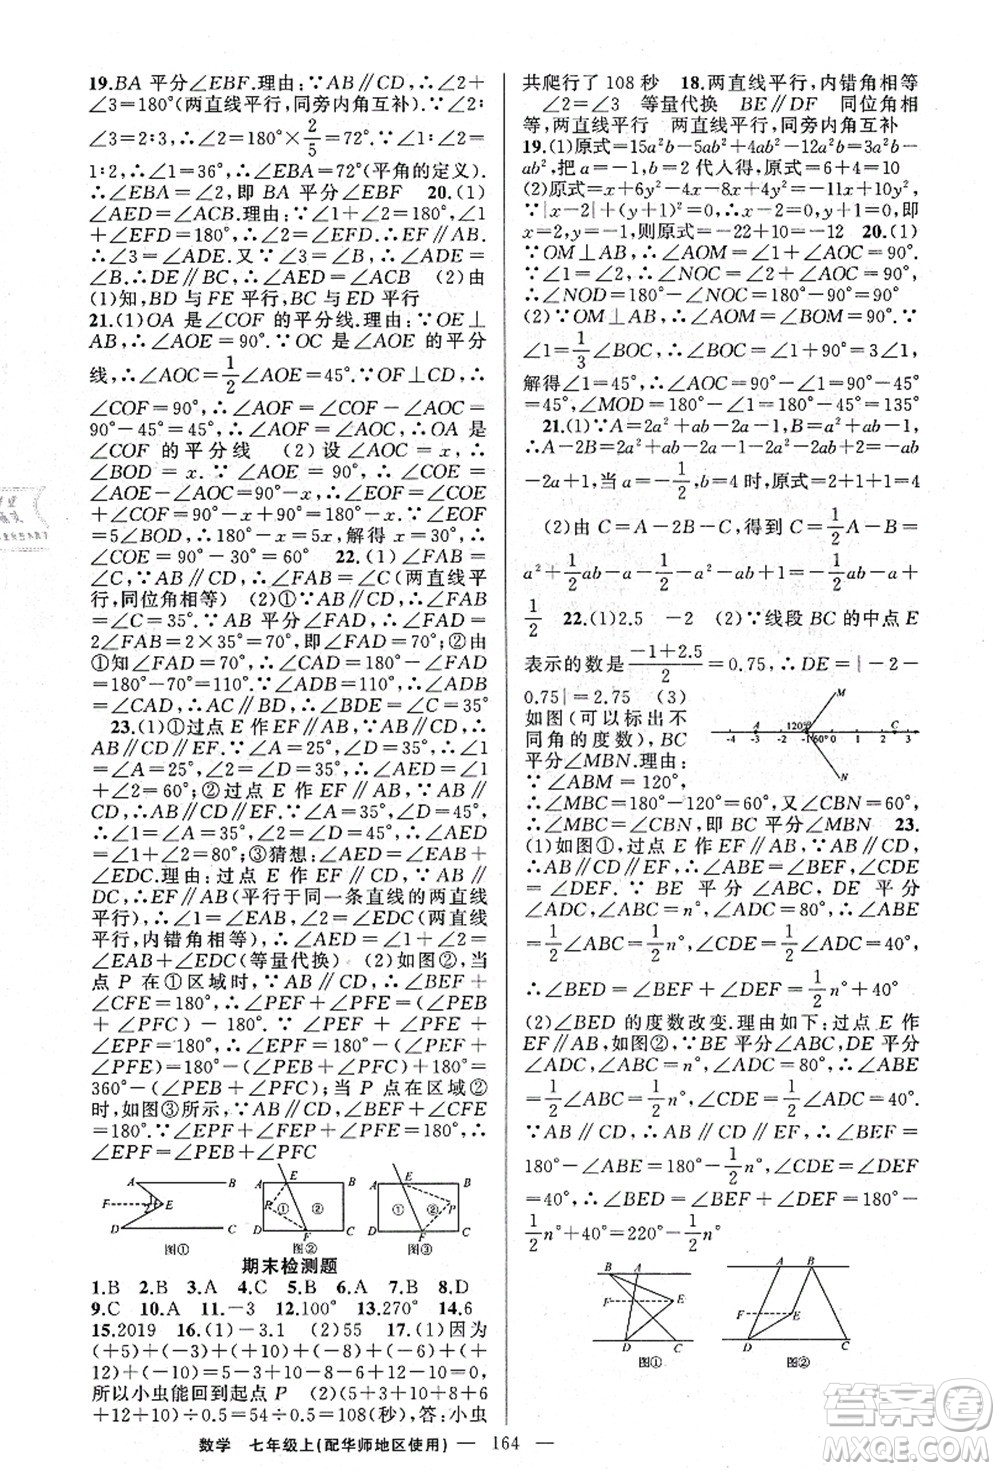 19.BA 平分∠EBF.理由:∵AB∥CD,∴∠2+
∠3=180°(两直线平行,同旁内角互补).∵∠2:
∠3=2:3,∴∠2=180°×2/5=72°.∵∠1:∠2=
1:2,∴∠1=36°,∴∠EBA=72°(平角的定义).
∴∠EBA=∠2,即 BA 平分∠EBF 20.(1)
∠AED=∠ACB.理由:∵∠1+∠2=180°,∠1
+∠EFD=180°.∴∠2=∠EFD.∴EF∥AB.
∴∠3=∠ADE.又∵∠3=∠B,∴∠ADE=
∠B.∴DE∥BC,∴∠AED=∠ACB (2)由
(1)知,BD 与 FE 平行,BC 与 ED 平行
21.(1)OA 是∠COF 的平分线.理由:∵OE⊥
AB,∴∠AOE=90°.∵OC 是∠AOE 的平分
线,∴∠AOC=1/2∠AOE=45°.∵OF⊥CD,∴
∠COF=90°,∴∠AOF=∠COF-∠AOC=
90°-45°=45°,∴∠AOF=∠AOC,∴OA 是
∠COF 的平分线 (2)设∠AOC=x,∴
∠BOD=x.∵∠AOE=90°,∴∠COE=
∠AOE+∠AOC=90°-x,∴∠EOF=∠COE+
∠COF=90°-x+90°=180°-x.∵∠EOF=
5∠BOD,∴180°-x=5x,解得 x=30°,即
∠COE=90°-30°=60° 22.(1)∵∠FAB=
∠C,∵AB∥CD,∴∠FAB=∠C(两直线平
行,同位角相等) (2)①∵∠FAB=∠C,∠C=35°,∴
∠FAB=∠C=35°.∵AB 平分∠FAD,∴∠FAD=
2∠FAB=2×35°=70°,即∠FAD=70°;②由
①知∠FAD=70°,∴∠CAD=180°-∠FAD=
180°-70°=110°,∵∠ADB=110°,∴∠ADB=
∠CAD,∴AC∥BD,∴∠BDE=∠C=35°
23.(1)①过点 E 作 EF∥AB,∵AB∥CD,∴
AB∥CD∥EF.∵∠A=25°,∠D=35°,∴∠1=
∠A=25°,∠2=∠D=35°,∴∠AED=∠1+
∠2=60°;②过点 E 作 EF∥AB,∵AB∥CD,
∴AB∥CD∥EF.∵∠A=35°,∠D=45°,∴∠1
=∠A=35°,∠2=∠D=45°,∴∠AED=
∠1+∠2=80°;③猜想:∠AED=∠EAB+
∠EDC.理由:过点 E 作 EF∥CD,∵AB∥DC,
∴EF∥AB(平行于同一条直线的两直线
平行),∴∠1=∠EAB,∠2=∠EDC(两直线
平行,内错角相等),∴∠AED=∠1+∠2=
∠EAB+∠EDC(等量代换) (2)如图②,当
点 P 在①区域时,∵AB∥CD,∴∠BEF+
∠CFE=180°,∴∠PEF+∠PFE=(∠PEB
+∠PFC)-180°.∵∠PEF+∠PFE+
∠EPF=180°,∴∠EPF=180°-(∠PEF+
∠PFE)=180°-(∠PEB+∠PFC)+180°=
360°-(∠PEB+∠PFC);当 P 点在区域②
时,如图③所示,∵AB∥CD,∴∠BEF+∠CFE
=180°.∵∠EPF+∠FEP+∠PFE=180°,∴
∠EPF=∠PEB+∠PFC
A B
F E
D C
图①
A E B
P ① ②
D F C
图②
A E B
① ② P
D F C
图③
期末检测题
1.B 2.B 3.A 4.C 5.B 6.A 7.B 8.D
9.C 10.A 11.-3 12.100° 13.270° 14.6
15.2019 16.(1)-3.1 (2)55 17.(1)因为
(+5)+(-3)+(+10)+(-8)+(-6)+
(+12)+(-10)=5-3+10-8-6+12-10=0,
所以小虫能回到起点 P (2)(5+3+10+8+6
+12+10)÷0.5=54÷0.5=108(秒),答:小虫
共爬行了 108 秒 18.两直线平行,内错角相等
∠2=∠3 等量代换 BE∥DF 同位角相
等,两直线平行 两直线平行,同旁内角互补
19.(1)原式=15a²b-5ab²+4ab²-12a²b=3a²b
-ab²,把 a=-1,b=2 代人得,原式=6+4=10
(2)原式=x+6y²-4x-8x+4y²=-11x+10y²,
∵|x-2|+(y+1)²=0,∴x-2=0,y+1=0,即
x=2,y=-1,则原式=-22+10=-12 20.(1)
∵OM⊥AB,∴∠AOM=∠1+∠AOC=90°.
∵∠1=∠2,∴∠NOC=∠2+∠AOC=90°,
∴∠NOD=180°-∠NOC=180°-90°=90°
(2)∵OM⊥AB,∴∠AOM=∠BOM=90°.∵
∠1=1/3∠BOC,∴∠BOC=∠1+90°=3∠1,
解得∠1=45°,∠AOC=90°-∠1=90°-45°
=45°,∠MOD=180°-∠1=180°-45°=135°
21.(1)∵A=2a²+ab-2a-1,B=a²+ab-1,
∴A-2B=2a²+ab-2a-1-2a²-2ab+2=-ab
-2a+1,当 a=-1/2,b=4 时,原式=2+1+1=4
(2)由 C=A-2B-C,得到 C=1/2A-B=
a²+1/2ab-a-1/2-a²-ab+1=-1/2ab-a+
1/2 22.(1)2.5 -2 (2)∵线段 BC 的中点 E
表示的数是(-1+2.5)/2=0.75,∴DE=|-2-
0.75|=2.75 (3)
如图(可以标出不
同角的度数),BC
平分∠MBN.理由:
∵∠ABM=120°,
∴∠MBC=180°-120°=60°,又∠CBN=60°,
∴∠MBC=∠CBN,即 BC 平分∠MBN 23.
M
A 120° C
-4 -3 -2 -1 60° 0 1 2 3
N
(1)如图①,过点 E 作 EF∥AB.∵AB∥CD,∴
AB∥CD∥EF,∴∠ABE=∠BEF,∠CDE
=∠DEF.∵BE 平分∠ABC,DE 平分
∠ADC,∠ABC=n°,∠ADC=80°,∴∠ABE
=1/2∠ABC=1/2n°,∠CDE=1/2∠ADC=40°,
∴∠BED=∠BEF+∠DEF=1/2n°+40°
(2)∠BED的度数改变.理由如下:过点 E 作
EF∥AB,如图②,∵BE 平分∠ABC,DE 平分
∠ADC,∠ABC=n°,∠ADC=80°,∴∠ABE=
1/2∠ABC=1/2n°,∠CDE=1/2∠ADC=40°.
∵AB∥CD,∴AB∥CD∥EF,∴∠BEF=
180°-∠ABE=180°-1/2n°,∠CDE=∠DEF
=40°,∴∠BED=∠BEF+∠DEF=180°-
1/2n°+40°=220°-1/2n°
B A
F E
D C
图①
A B
F E
D C
图②
数学 七年级上(配华师地区使用) — 164 —